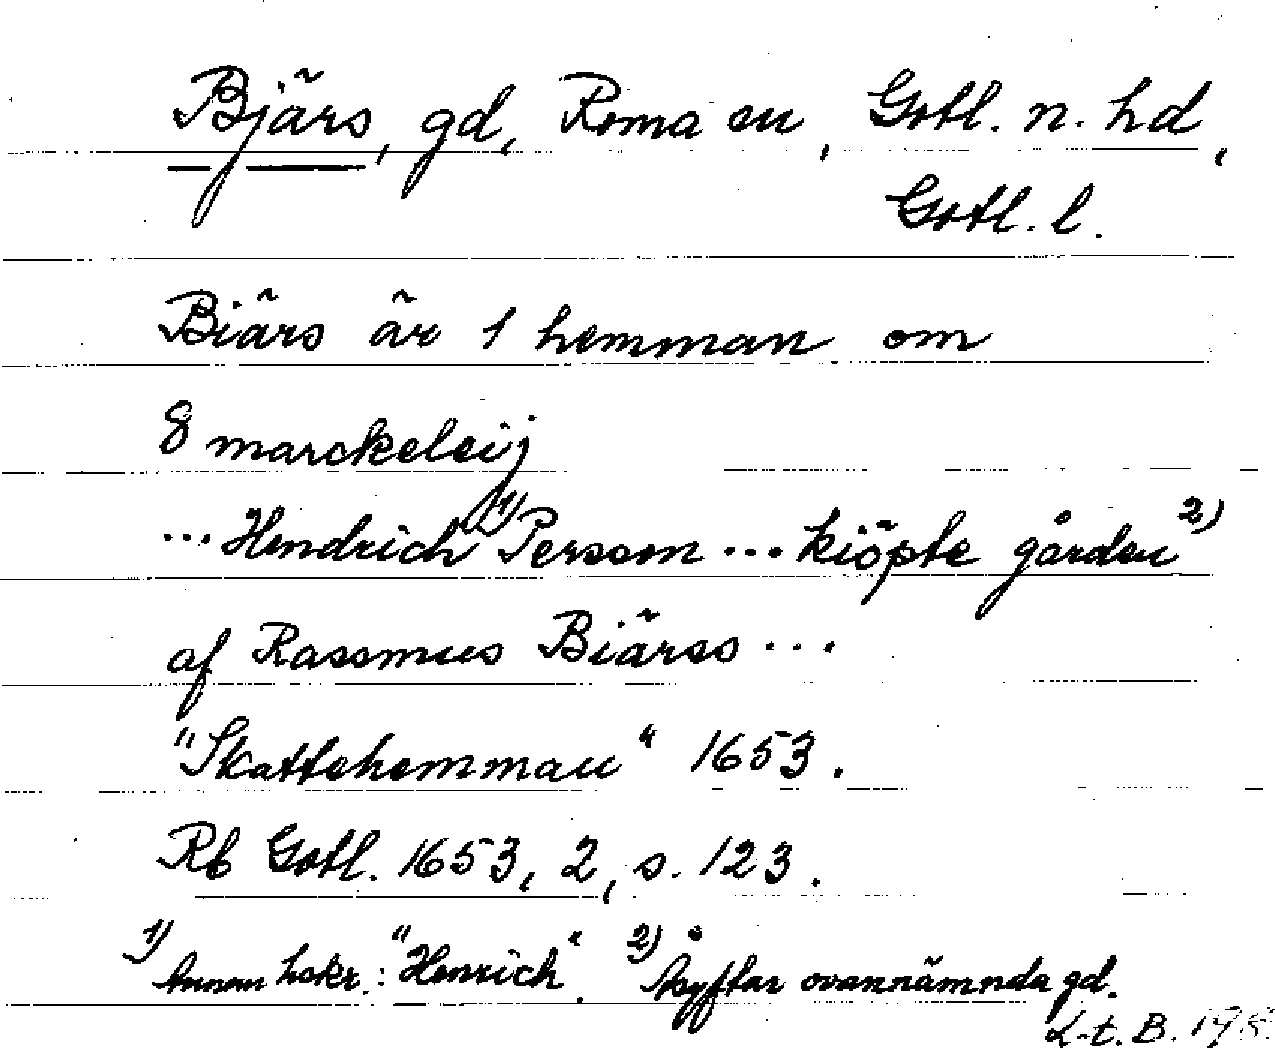 Bjärs, gd, Roma sn, Gotl. n. hd,
Gotl. l.
Biärs är 1 hemman om
8 marckeleij
... Hendrich 1) Persson ... kiöpte gården 2)
af Rassmus Biärss ...
"Skattehemman" 1653.
Rb Gotl. 1653, 2, s. 123.
1) Annan hskr.: "Henrich". 2) Åsyftar ovannämnda gd.
L-t. B.